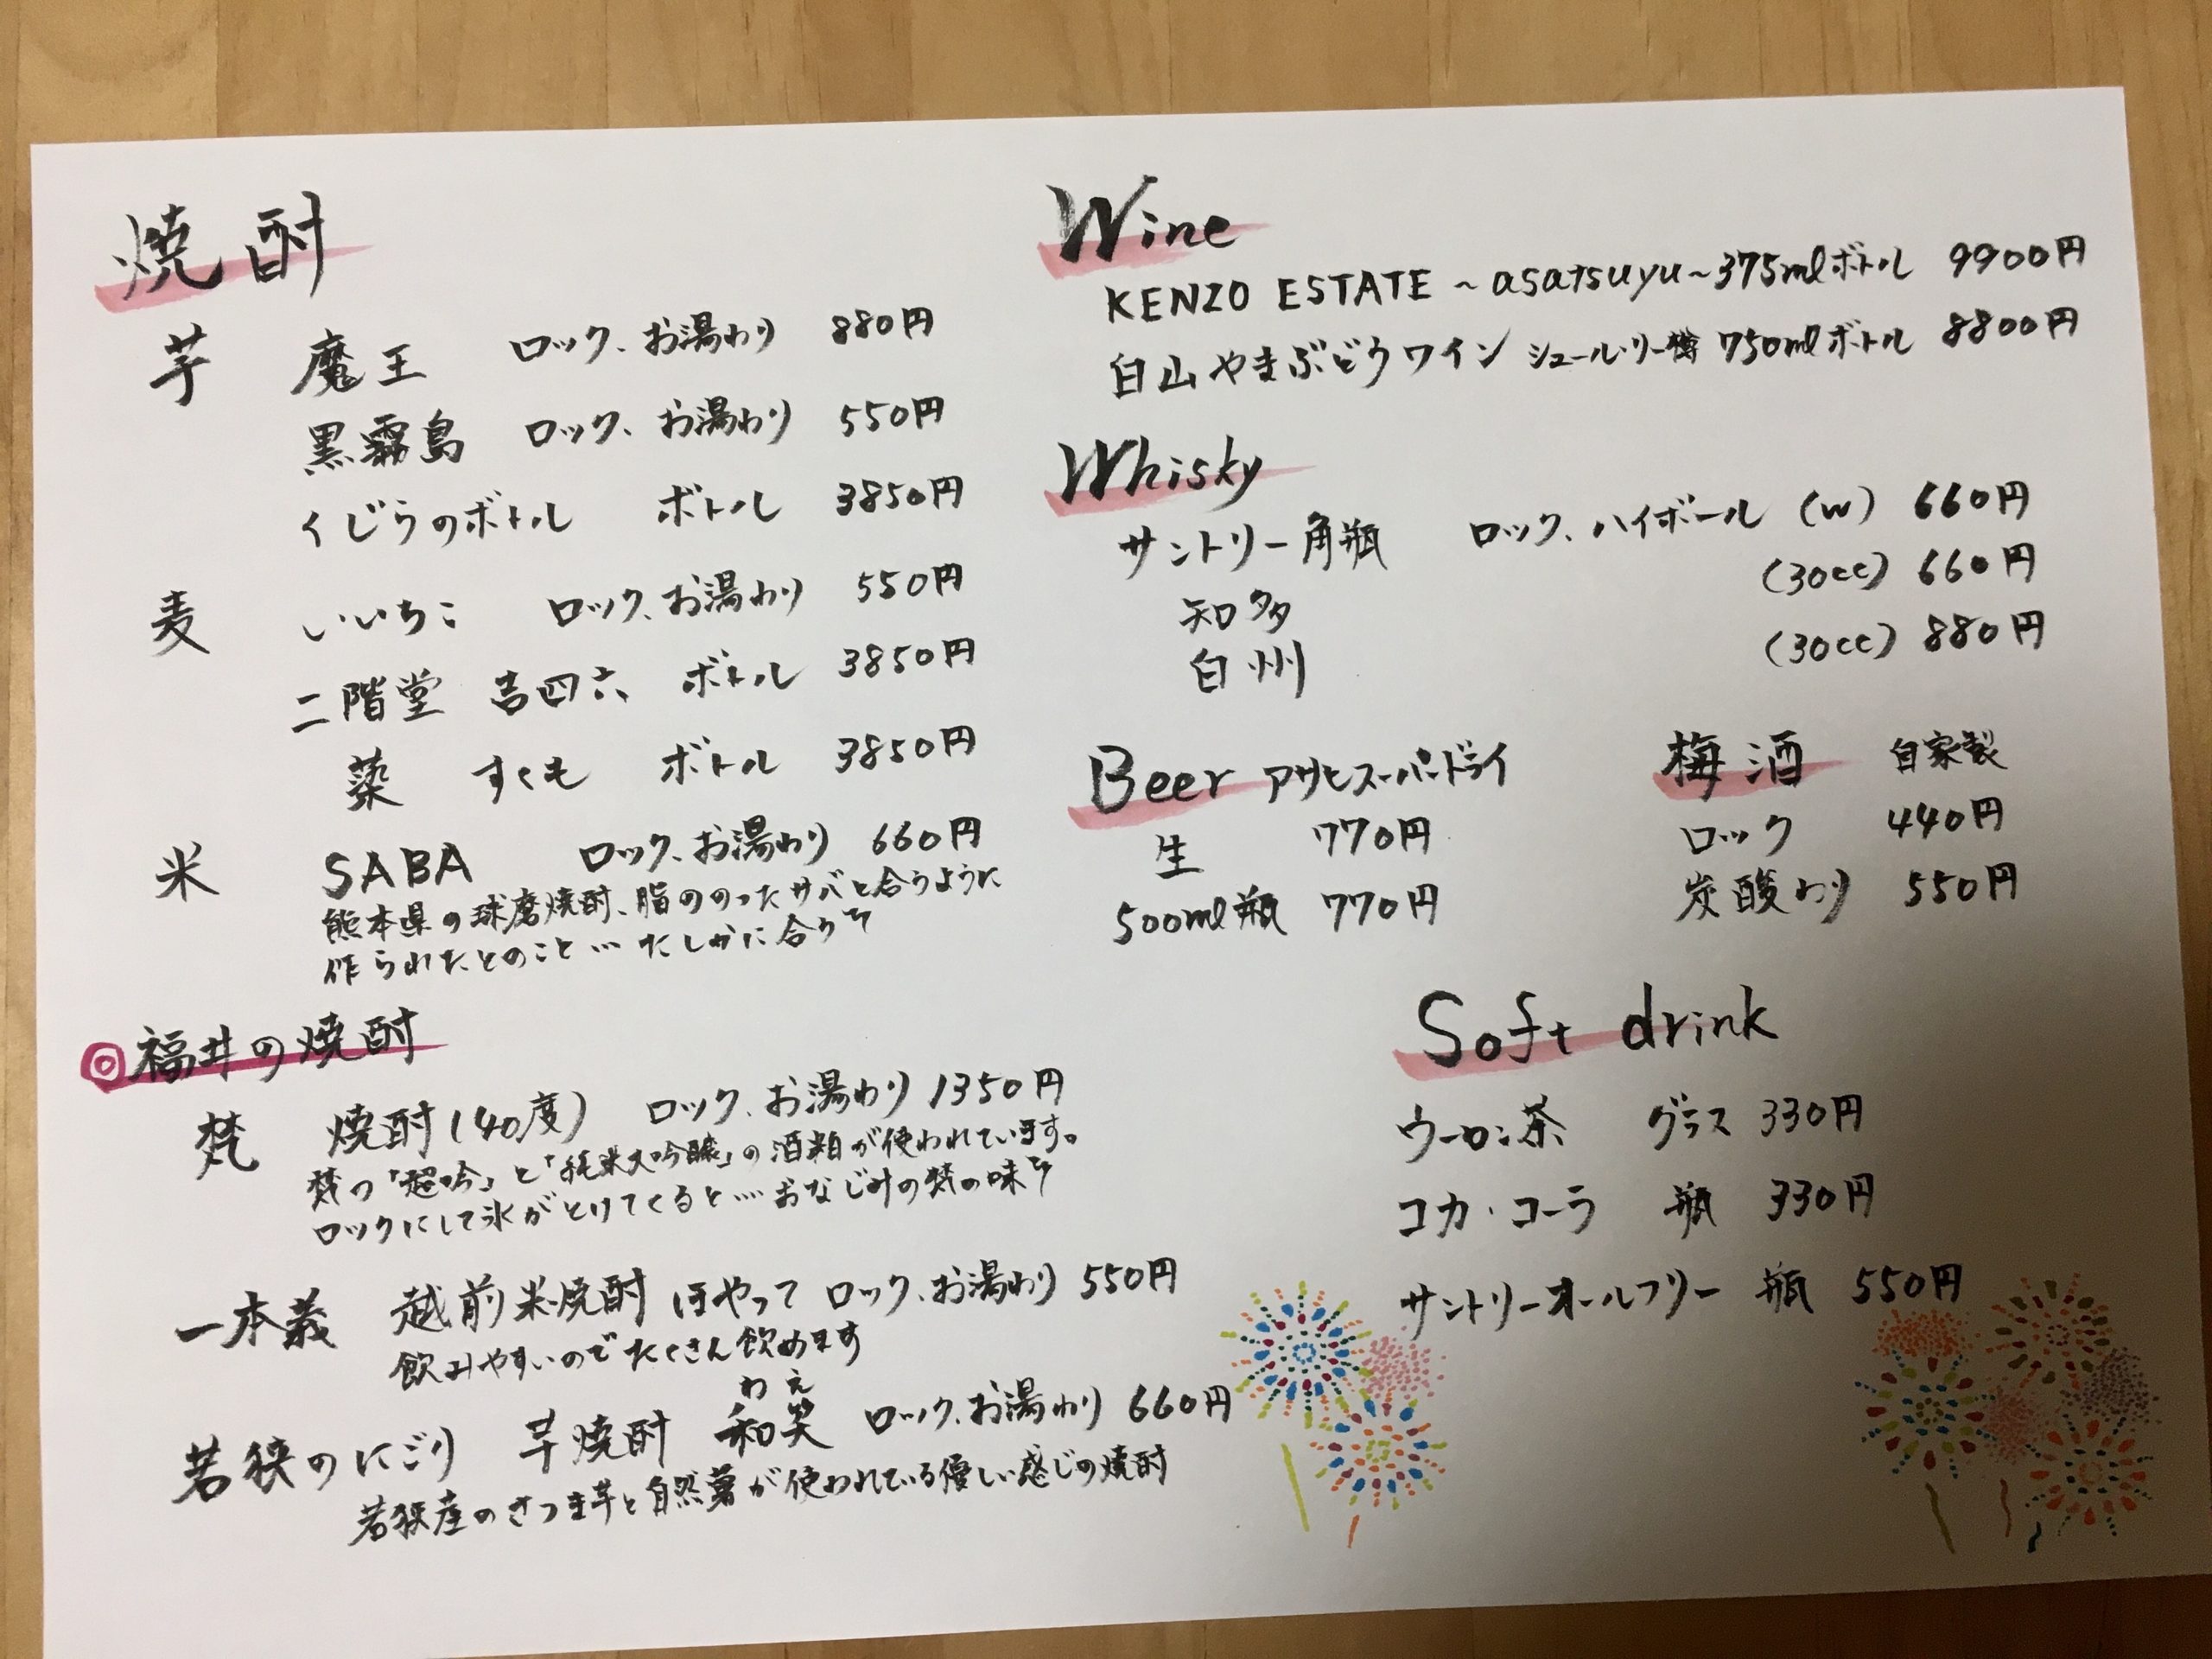 焼酎
芋 魔王 ロック、お湯わり 880円
黒霧島 ロック、お湯わり 550円
くじらのボトル ボトル 3850円
麦 いいちこ ロック、お湯わり 550円
二階堂 吉四六 ボトル 3850円
すくも ボトル 3850円
米 SABA ロック、お湯わり 660円
熊本県の球磨焼酎、脂ののったサバと合うように
作られたとのこと…たしかに合う
◎福井の焼酎
梵 焼酎(40度) ロック、お湯わり 1350円
梵の「超吟」と「純米大吟醸」の酒粕が使われています。
ロックにして氷がとけてくると….おなじみの梵の味
一本義 越前米焼酎 ほやって ロック、お湯わり 550円
飲みやすいのでたくさん飲めます
わ え
若狭のにごり 芋焼酎 和笑 ロック、お湯わり 660円
若狭産のさつま芋と自然薯が使われている優しい感じの焼酎
Wine
KENZO ESTATE ~asatsuyu~375mlボトル 9900円
白山やまぶどうワイン シュール・リー 750mlボトル 8800円
Whisky
サントリー角瓶 ロック、ハイボール (W) 660円
知多 (30cc) 660円
白州 (30cc) 880円
Beer アサヒスーパードライ
生 770円
500ml瓶 770円
梅酒 自家製
ロック 440円
炭酸わり 550円
Soft drink
ウーロン茶 グラス 330円
コカ・コーラ 瓶 330円
サントリーオールフリー 瓶 550円